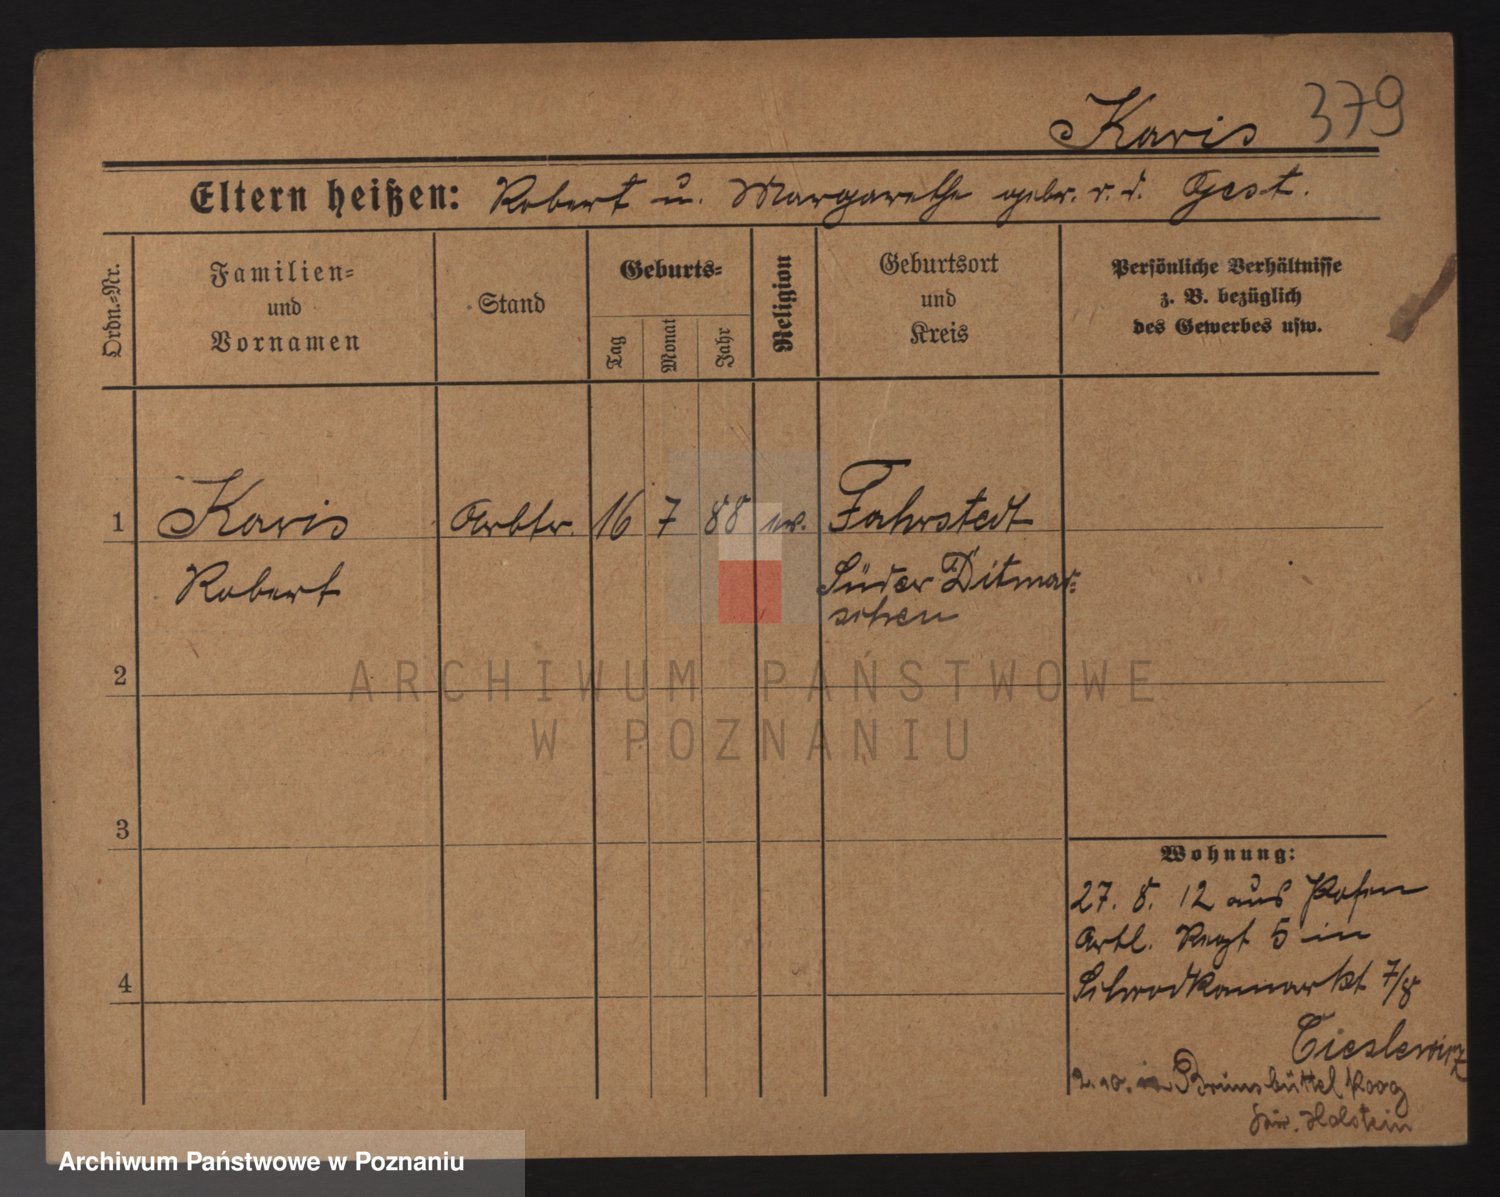 Karis 379
Eltern heißen: Robert u. Margarethe gebr. v. d. Gest.
Ordn.-Nr.
Familien-
und
Vornamen
Stand
Geburts-
Tag
Monat
Jahr
Religion
Geburtsort
und
Kreis
Persönliche Verhältnisse
z. B. bezüglich
des Gewerbes usw.
1 Karis Arbtr. 16 7 88 ev. Fahrstedt
Robert Süder Ditmar-
schen
2
3
4
Wohnung:
27. 8. 12 aus Posen
Artl. Regt 5 in
Schrodkamarkt 7/8
Cieslewicz
2.10. in Brunsbüttel Koog
Holstein
ARCHIWUM PAŃSTWOWE
W POZNANIU
Archiwum Państwowe w Poznaniu